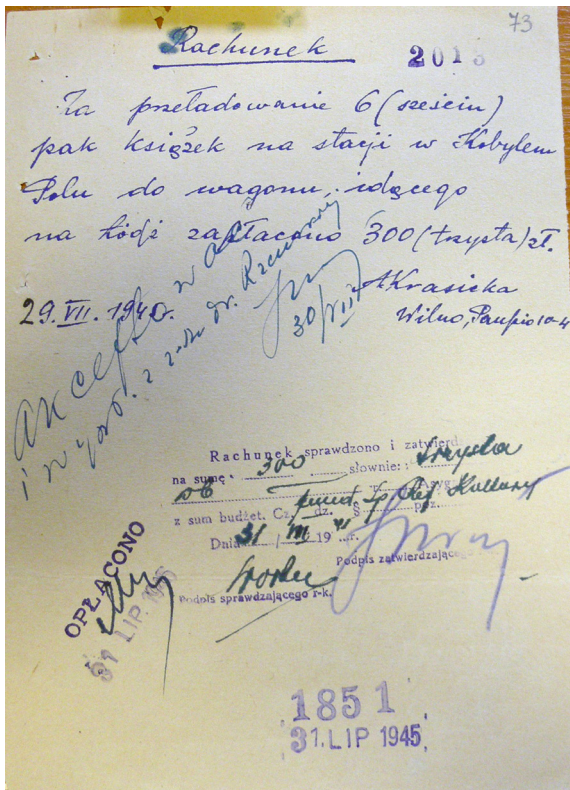 73
Rachunek
2013
Za przeładowanie 6 (sześciu)
pak książek na stacji w Kobylem
Polu do wagonu, idącego
na Łódź zapłacono 300 (trzysta) zł.
AKrasicka
29. VII. 1945r.
Wilno, Paupio 10-4
Akcept
i wypł. z zal. dr.
30/VII
Rachunek sprawdzono i zatwierd
na sumę 300 słownie: trzysta
z sum budżet. Cz. dz. § poz.
Dnia 31 / VII 19 45 r.
Podpis zatwierdzającego
Podpis sprawdzającego r-k.
OPŁACONO
31 LIP 1945
1851
31. LIP 1945